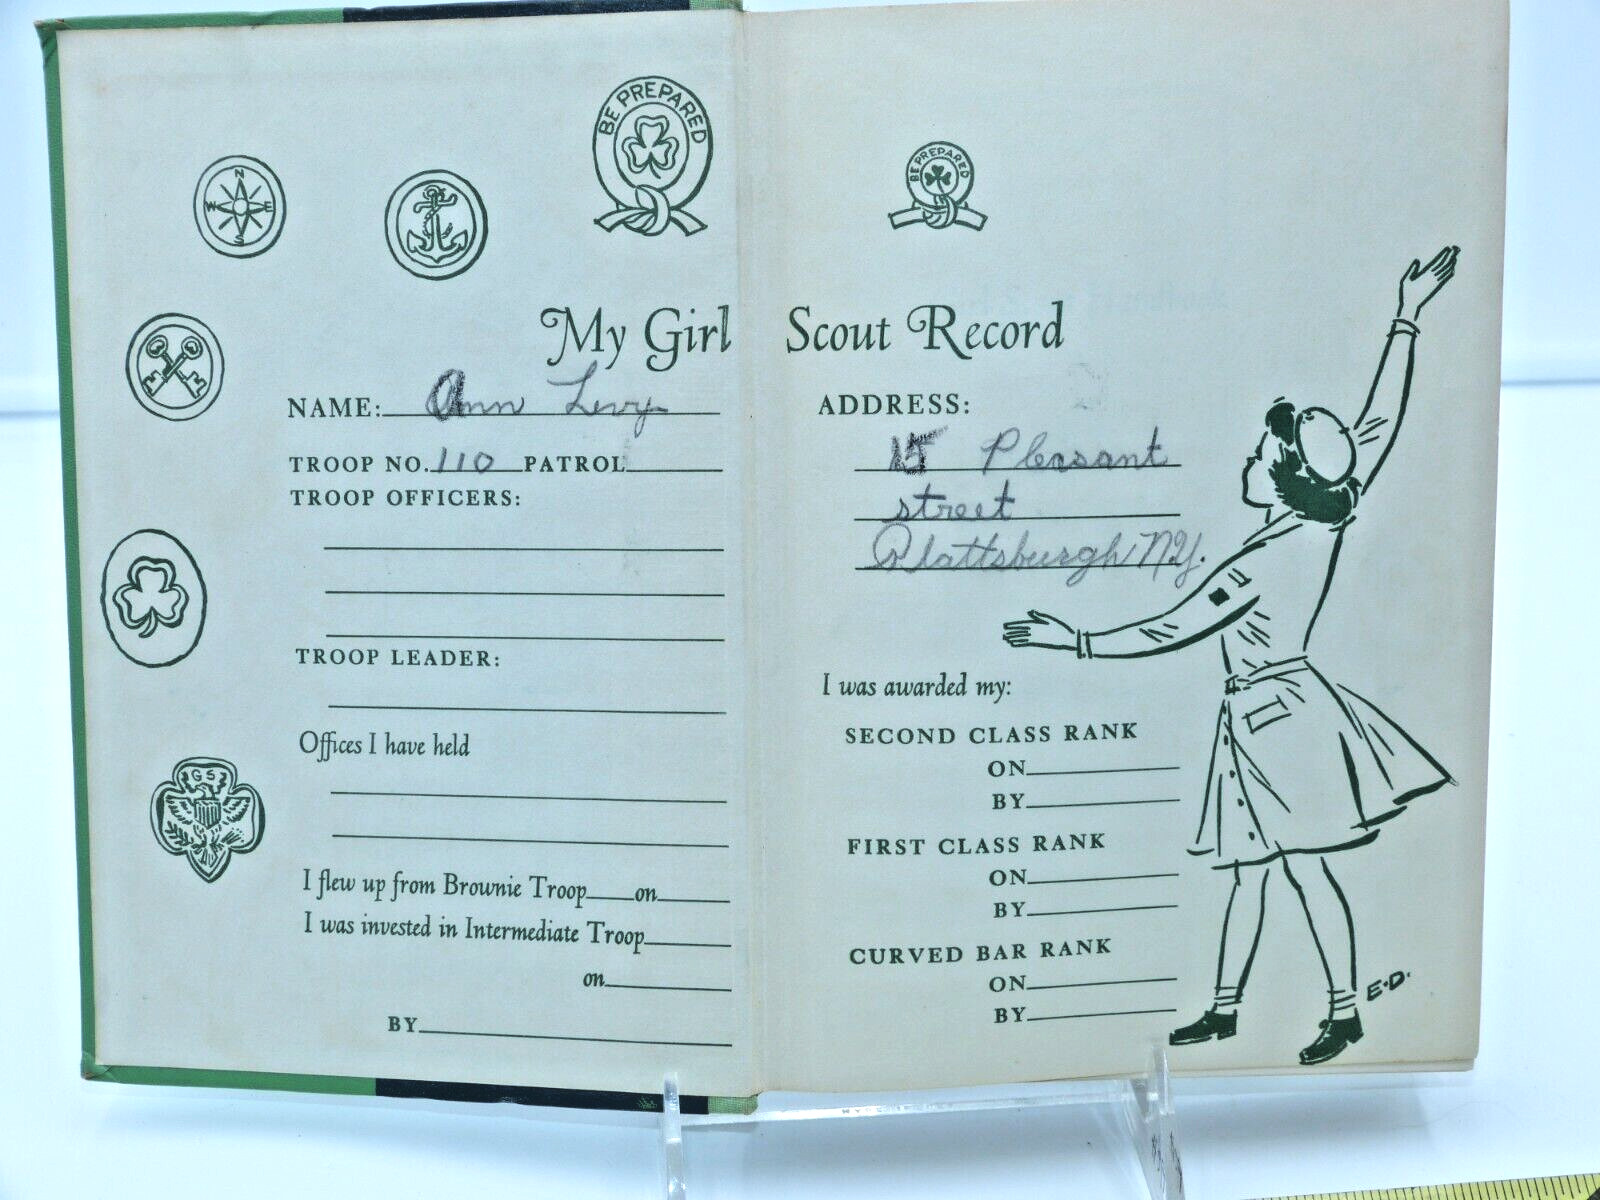 BE PREPARED
BE PREPARED
N
W E
S
My Girl Scout Record
NAME: Ann Levy
TROOP NO. 110 PATROL
TROOP OFFICERS:
TROOP LEADER:
Offices I have held
GS
I flew up from Brownie Troop on
I was invested in Intermediate Troop
on
BY
ADDRESS:
15 Pleasant
street
Plattsburgh N.Y.
I was awarded my:
SECOND CLASS RANK
ON
BY
FIRST CLASS RANK
ON
BY
CURVED BAR RANK
ON
BY
E.D.